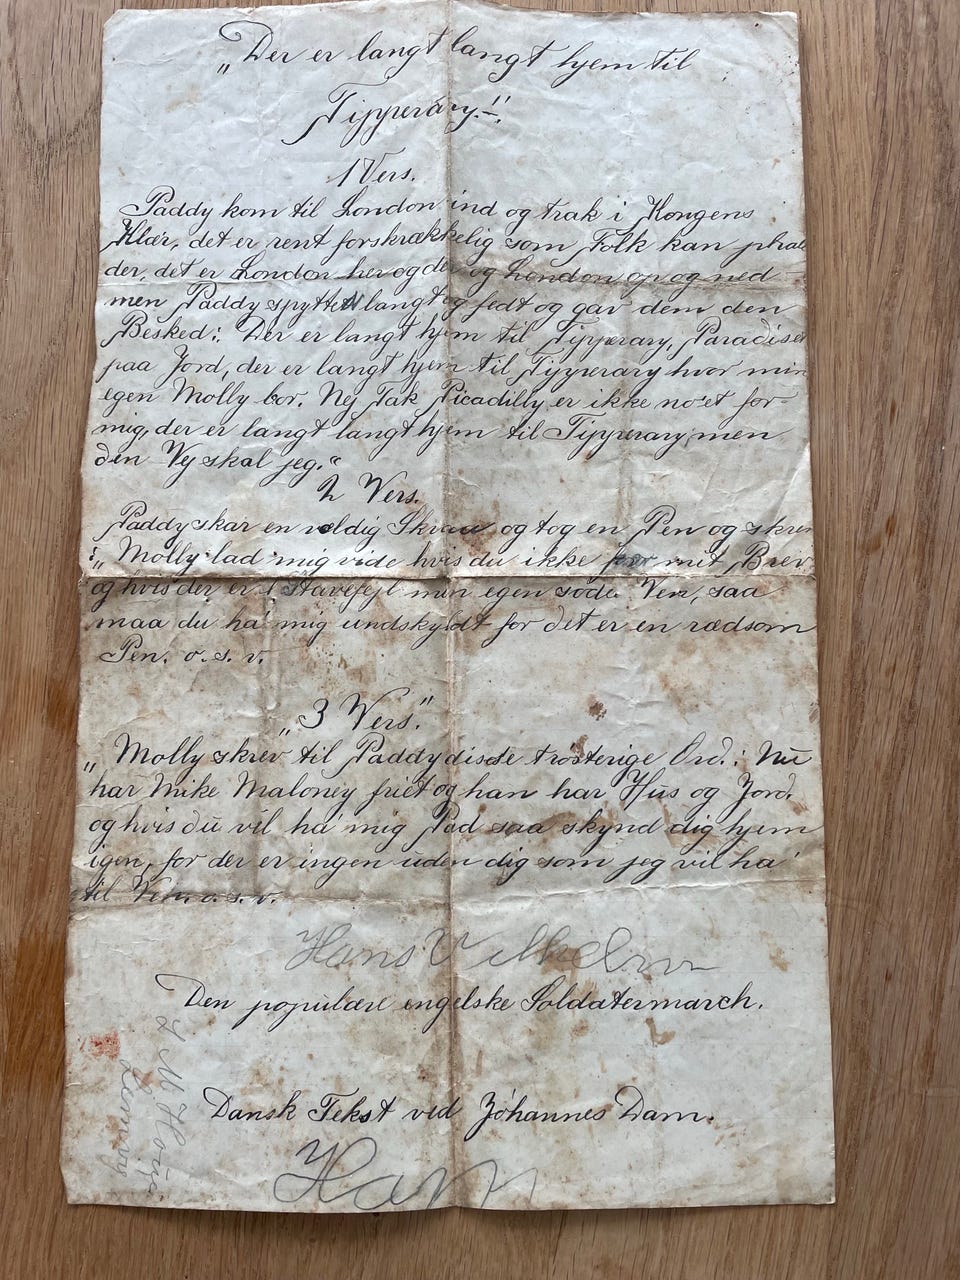 „Der er langt langt hjem til
Tipperary.!!
1 Vers.
Paddy kom til London ind og trak i Kongens
Klær, det er rent forskrækkelig som Folk kan phra
der, det er London her og der og London op og ned
men Paddy spytted langt og fedt og gav dem den
Besked: Der er langt hjem til Tipperary, Paradiset
paa Jord, der er langt hjem til Tipperary hvor min
egen Molly bor. Nej Tak Picadilly er ikke no'et for
mig, der er langt langt hjem til Tipperary men
den Vej skal jeg.“
2 Vers.
Paddy skar en vældig og tog en Pen og skrev
:„Molly lad mig vide hvis du ikke faar mit Brev
og hvis der er 1 Stavefejl min egen søde Ven, saa
maa du ha' mig undskyldt for det er en rædsom
Pen. o. s. v.
„3 Vers.“
„Molly skrev til Paddy disse trøsterige Ord.: Nu
har Mike Maloney friet og han har Hus og Jord,
og hvis du vil ha' mig Pad saa skynd dig hjem
igen, for der er ingen uden dig som jeg vil ha'
til Ven o. s. v.
Hans Vilhelm
Den populære engelske Soldatermarch.
Dansk Tekst ved Johannes Dam.
Han